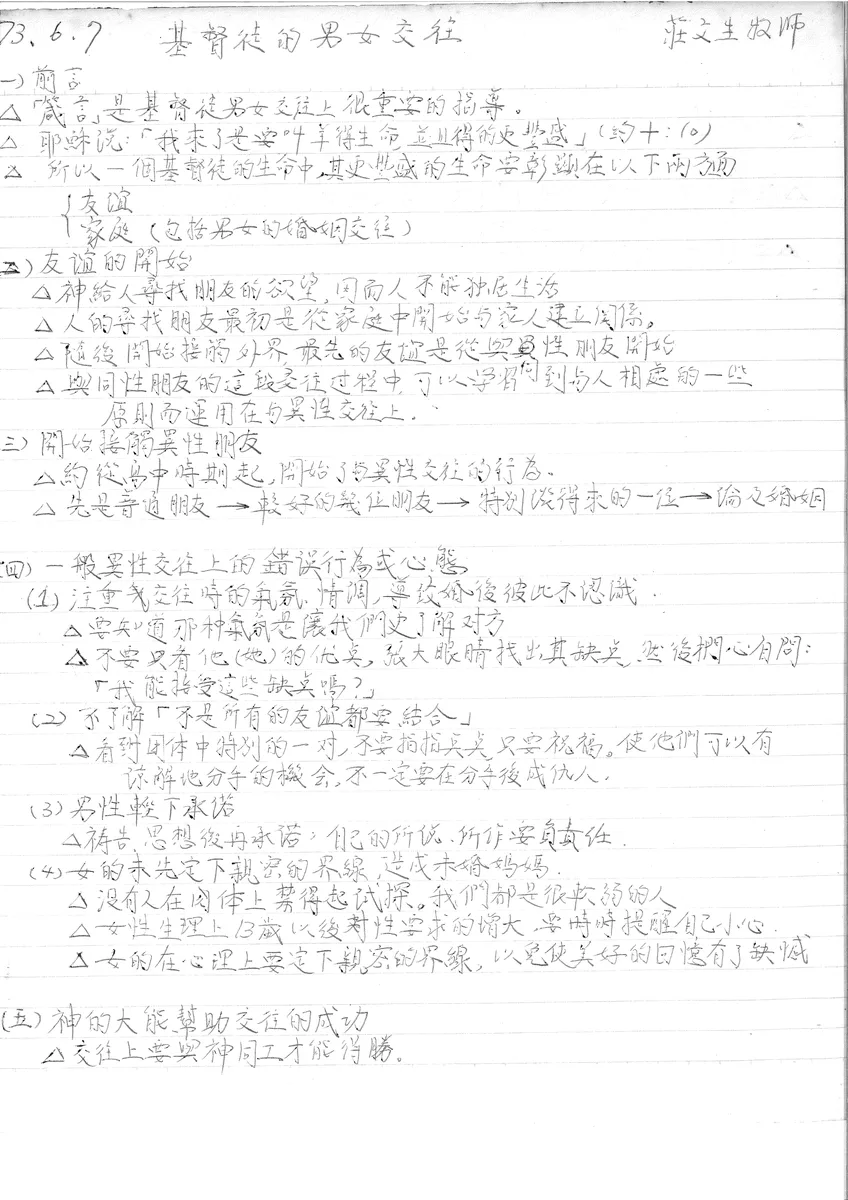 73.6.7 基督徒的男女交往 莊文生牧师
一) 前言
△「箴言」是基督徒男女交往上很重要的指導。
△ 耶穌說:「我來了是要叫羊得生命,並且得的更豐盛」(約十:10)
△ 所以一個基督徒的生命中,其更豐盛的生命要彰顯在以下兩方面
友谊
家庭 (包括男女的婚姻交往)
二) 友谊的開始
△ 神給人尋找朋友的欲望,因而人不能独居生活
△ 人的尋找朋友最初是從家庭中開始与家人建立関係。
△ 随後開始接觸外界,最先的友谊是從與異性朋友開始
△ 與同性朋友的這段交往过程中,可以学習到与人相處的一些
原則而運用在与異性交往上.
三) 開始接觸異性朋友
△ 約從高中時期起,開始了与異性交往的行為。
△ 先是普通朋友→較好的幾位朋友→特別談得來的一位→論及婚姻
(四) 一般異性交往上的錯誤行為或心態
(1) 注重在交往時的氣氛.情调,導致婚後彼此不認識.
△ 要知道那种氣氛是讓我們更了解对方
△ 不要只看他(她)的优点,張大眼睛找出其缺点,然後捫心自問:
「我能接受這些缺点嗎?」
(2) 不了解「不是所有的友谊都要結合」
△ 看到团体中特别的一对,不要指指点点,只要祝福。使他們可以有
諒解地分手的機会,不一定要在分手後成仇人.
(3) 男性輕下承诺
△ 祷告.思想後再承诺;自己的所說.所作要負責任.
(4) 女的未先定下親密的界線,造成未婚媽媽.
△ 没有人在肉体上禁得起試探。我們都是很軟弱的人
△ 女性生理上13歲以後對性要求的增大,要時時提醒自己小心.
△ 女的在心理上要定下親密的界線,以免使美好的回憶有了缺憾
(五) 神的大能幫助交往的成功
△ 交往上要與神同工才能得勝。